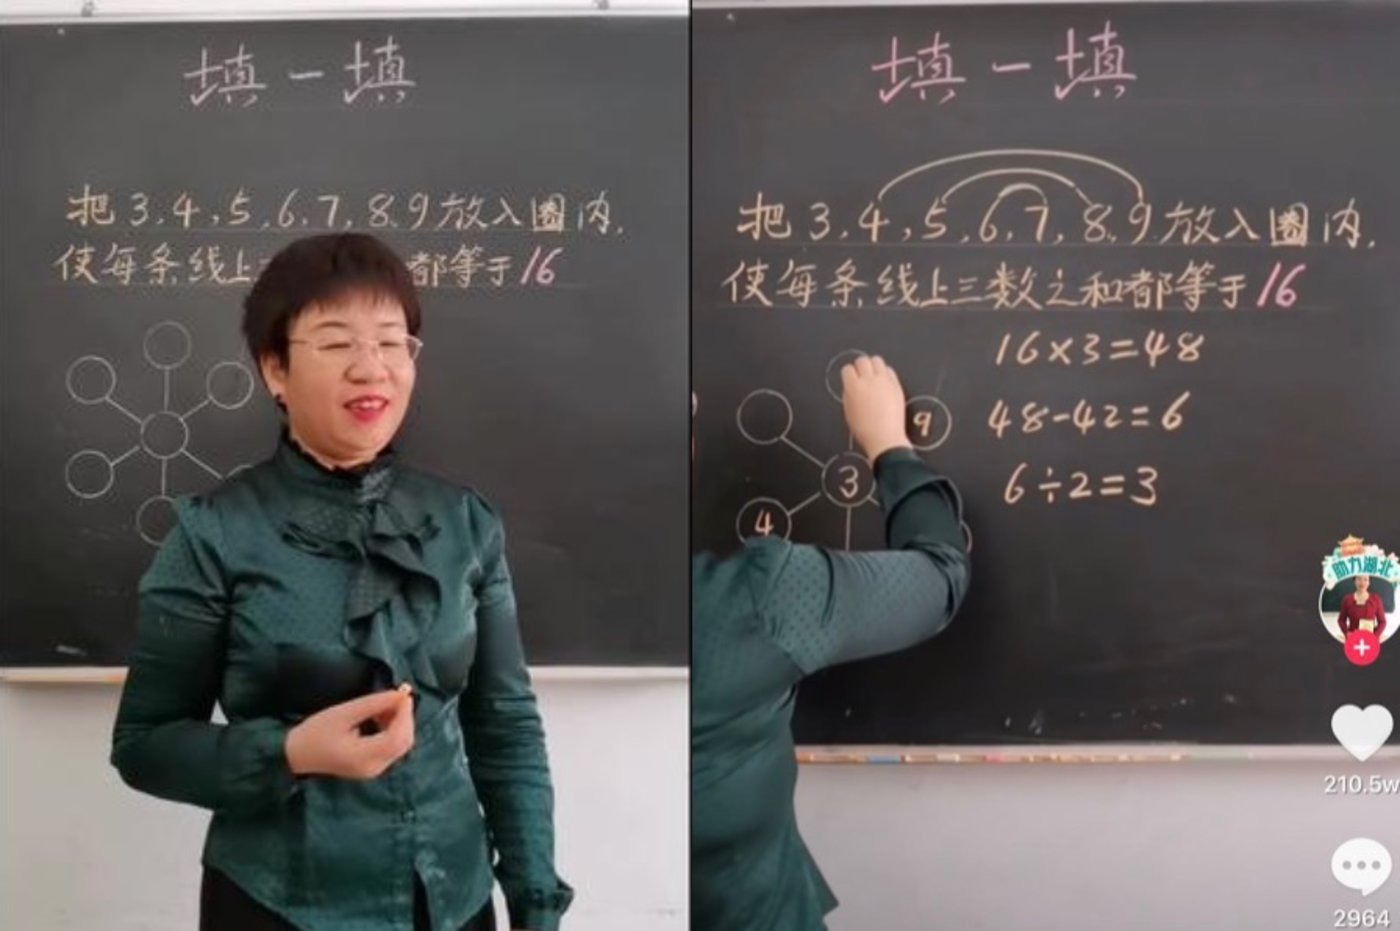 填一填
把3,4,5,6,7,8,9放入圈内,
使每条线上三
都等于16
填一填
把3,4,5,6,7,8,9放入圈内,
使每条线上三数之和都等于16
16×3=48
48-42=6
6÷2=3
9
3
4
助力湖北
210.5w
2964